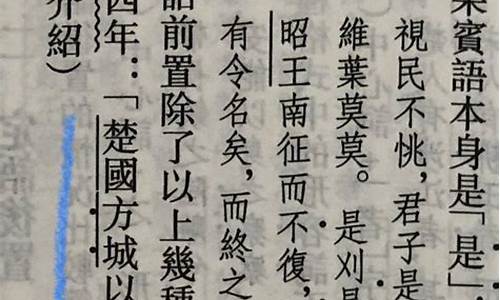 果賓語本身是「是」
視民不恌，君子是
維葉莫莫。是刈是
昭王南征而不復，
有令名矣，而終之
語前置除了以上幾種
四年：「楚國方城以
介紹）